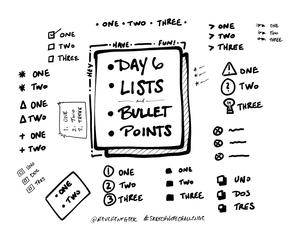 • ONE • TWO • THREE •
HAVE FUN!
HEY
• DAY 6
• LISTS
and
• BULLET
• POINTS
ONE
TWO
THREE
* ONE
* TWO
Δ ONE
Δ TWO
+ ONE
+ TWO
UNO
DOS
TRES
1. ONE
2. TWO
3. THREE
• ONE
• TWO
1 ONE
2 TWO
3 THREE
ONE
TWO
THREE
> ONE
> TWO
> THREE
ONE
TWO
THREE
! ONE
? TWO
THREE
UNO
DOS
TRES
#SKETCHNOTECHALLENGE